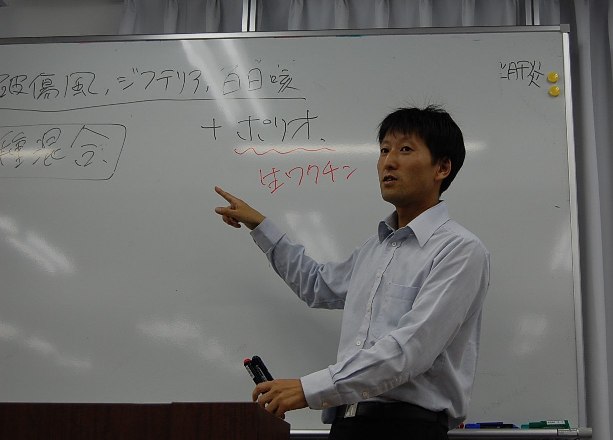 破傷風，ジフテリア，百日咳
肝炎
＋ポリオ、
種混合
生ワクチン